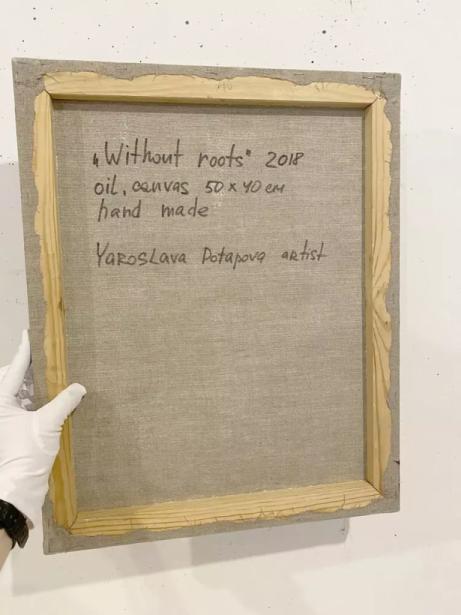 „Without roots" 2018
oil, canvas 50 x 40 cm
hand made
Yaroslava Potapova artist